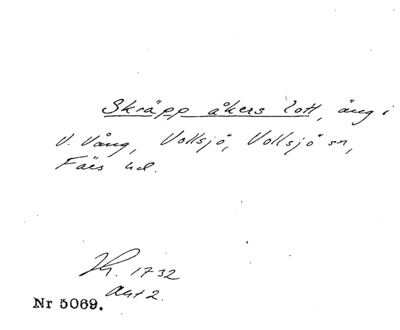 Skräpp åkers lott, äng i
V. Vång, Vollsjö, Vollsjö sn,
Färs hd.
1732
Akt 2.
Nr 5069.